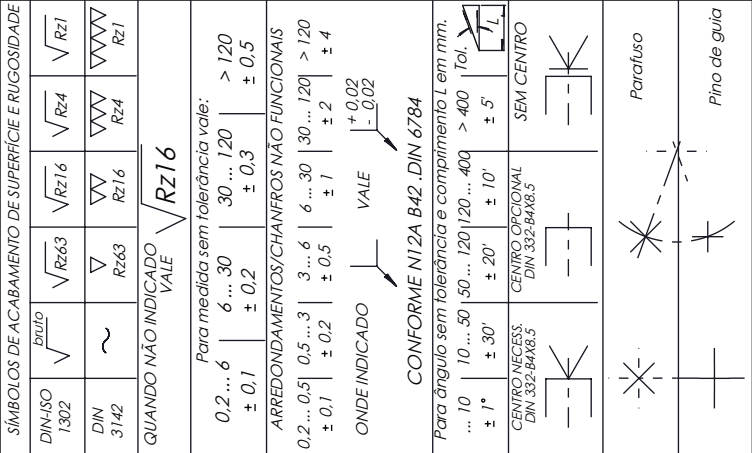 SÍMBOLOS DE ACABAMENTO DE SUPERFÍCIE E RUGOSIDADE
DIN-ISO 1302 bruto Rz63 Rz16 Rz4 Rz1
DIN 3142 ~ Rz63 Rz16 Rz4 Rz1
QUANDO NÃO INDICADO
VALE Rz16
Para medida sem tolerância vale:
0,2 ... 6 6 ... 30 30 ... 120 > 120
± 0,1 ± 0,2 ± 0,3 ± 0,5
ARREDONDAMENTOS/CHANFROS NÃO FUNCIONAIS
0,2 ... 0,5 0,5 ... 3 3 ... 6 6 ... 30 30 ... 120 > 120
± 0,1 ± 0,2 ± 0,5 ± 1 ± 2 ± 4
ONDE INDICADO VALE + 0,02
- 0,02
CONFORME N12A B42 .DIN 6784
Para ângulo sem tolerância e comprimento L em mm.
... 10 10 ... 50 50 ... 120 120 ... 400 > 400 Tol. L
± 1° ± 30' ± 20' ± 10' ± 5'
CENTRO NECESS.
DIN 332-B4X8.5
CENTRO OPCIONAL
DIN 332-B4X8.5
SEM CENTRO
Parafuso
Pino de guia